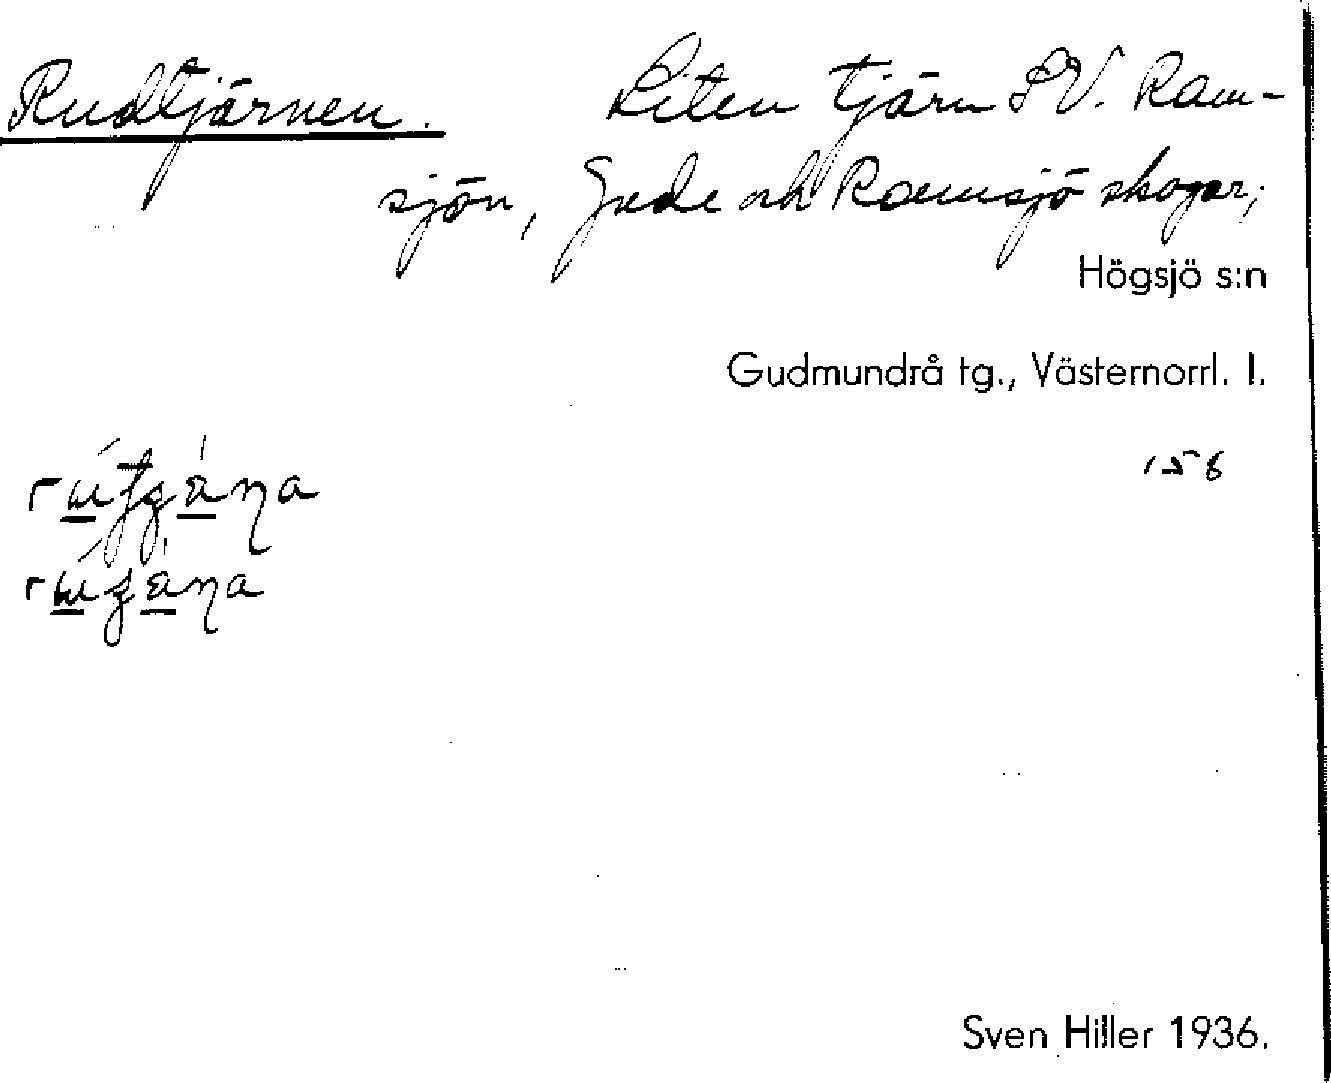 Rudtjärnen. Liten tjärn SV. Ram-
sjön, Gede och Ramsjö skogar;
Högsjö s:n
Gudmundrå tg., Västernorrl. l.
158
Sven Hiller 1936.